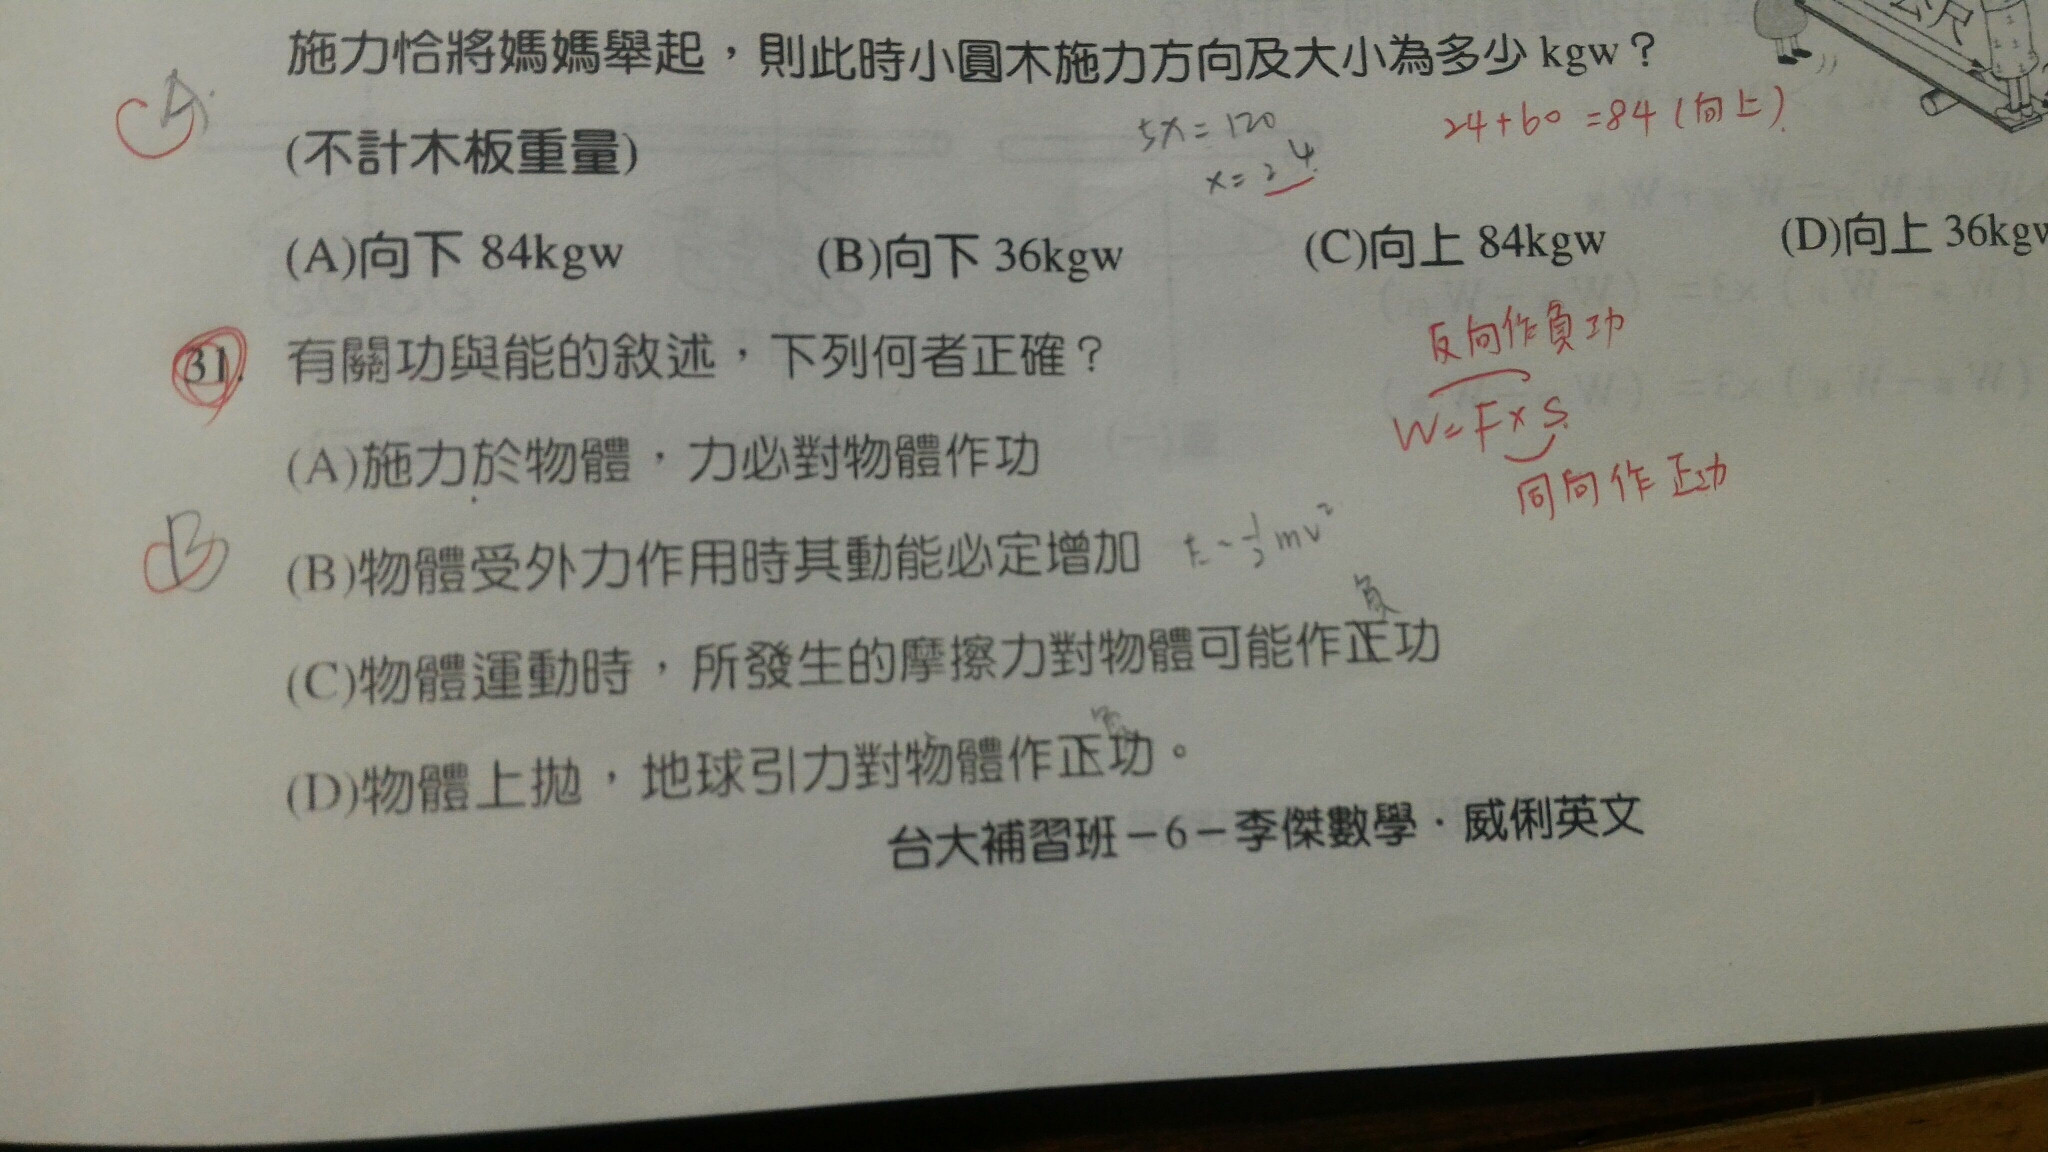 施力恰將媽媽舉起，則此時小圓木施力方向及大小為多少 kgw？
(不計木板重量)
5x = 120
x = 24
24+60 =84 (向上)
公尺
A
C
(A)向下 84kgw (B)向下 36kgw (C)向上 84kgw (D)向上 36kgw
31. 有關功與能的敘述，下列何者正確？
反向作負功
W=F×S
同向作正功
(A)施力於物體，力必對物體作功
B
(B)物體受外力作用時其動能必定增加 E=½mv²
負
(C)物體運動時，所發生的摩擦力對物體可能作正功
負
(D)物體上拋，地球引力對物體作正功。
台大補習班－6－李傑數學．威俐英文